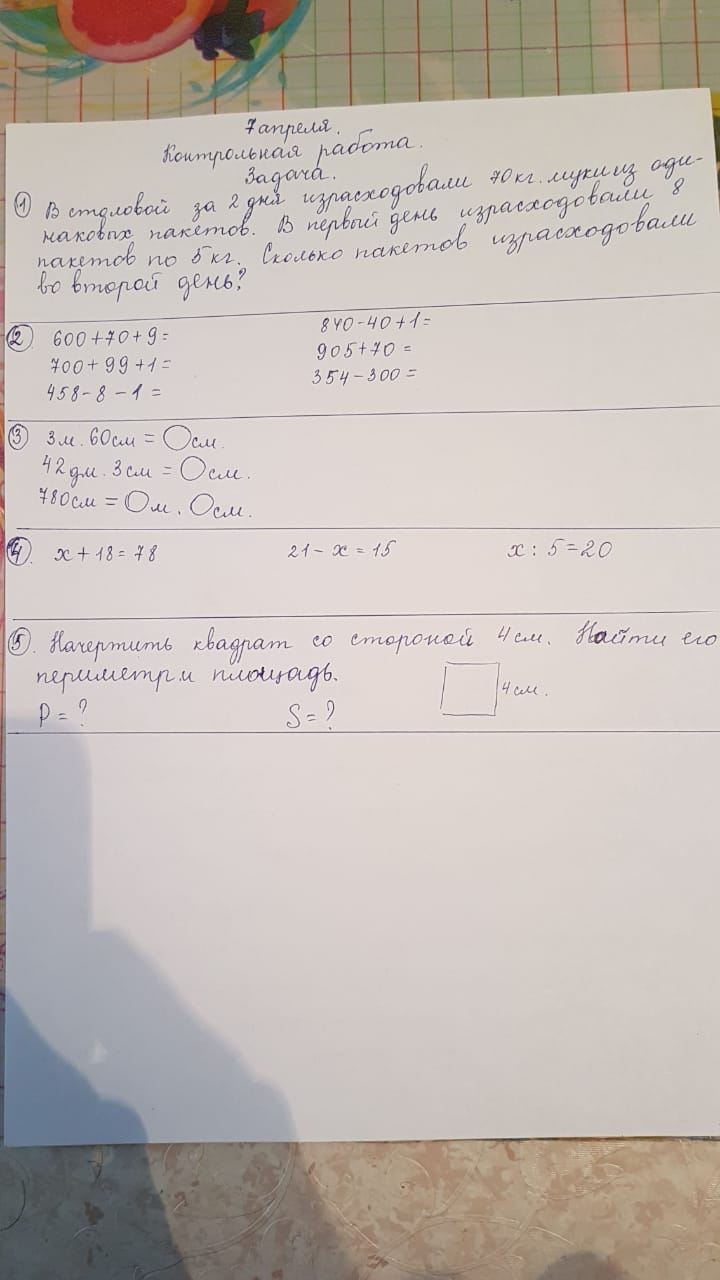 7 апреля.
Контрольная работа.
Задача.
① В столовой за 2 дня израсходовали 70 кг. муки из оди-
наковых пакетов. В первый день израсходовали 8
пакетов по 5 кг. Сколько пакетов израсходовали
во второй день?
②. 600+70+9= 840-40+1=
700+99+1= 905+70=
458-8-1= 354-300=
③ 3м. 60см = Осм.
42дм. 3см = Осм.
780см = Ом. Осм.
④. x+18=78 21-x=15 x:5=20
⑤. Начертить квадрат со стороной 4 см. Найти его
периметр и площадь.
4 см.
P=? S=?